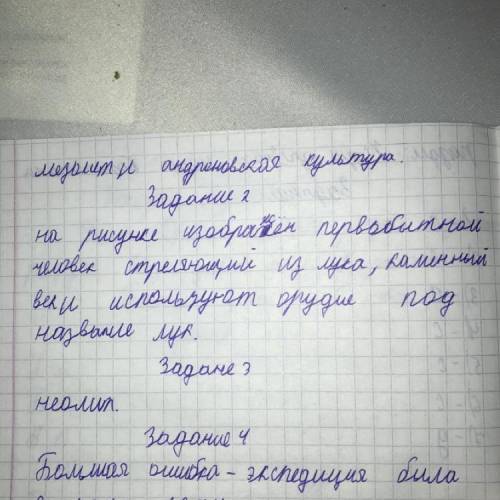 мезолет и андроновская культура.
Задание 2
на рисунке изображён первобитной
человек стреляющий из лука, каменный
век и используют орудие под
название лук.
Задане 3
неолит.
Задание 4
Большая ошибка - экспедиция била